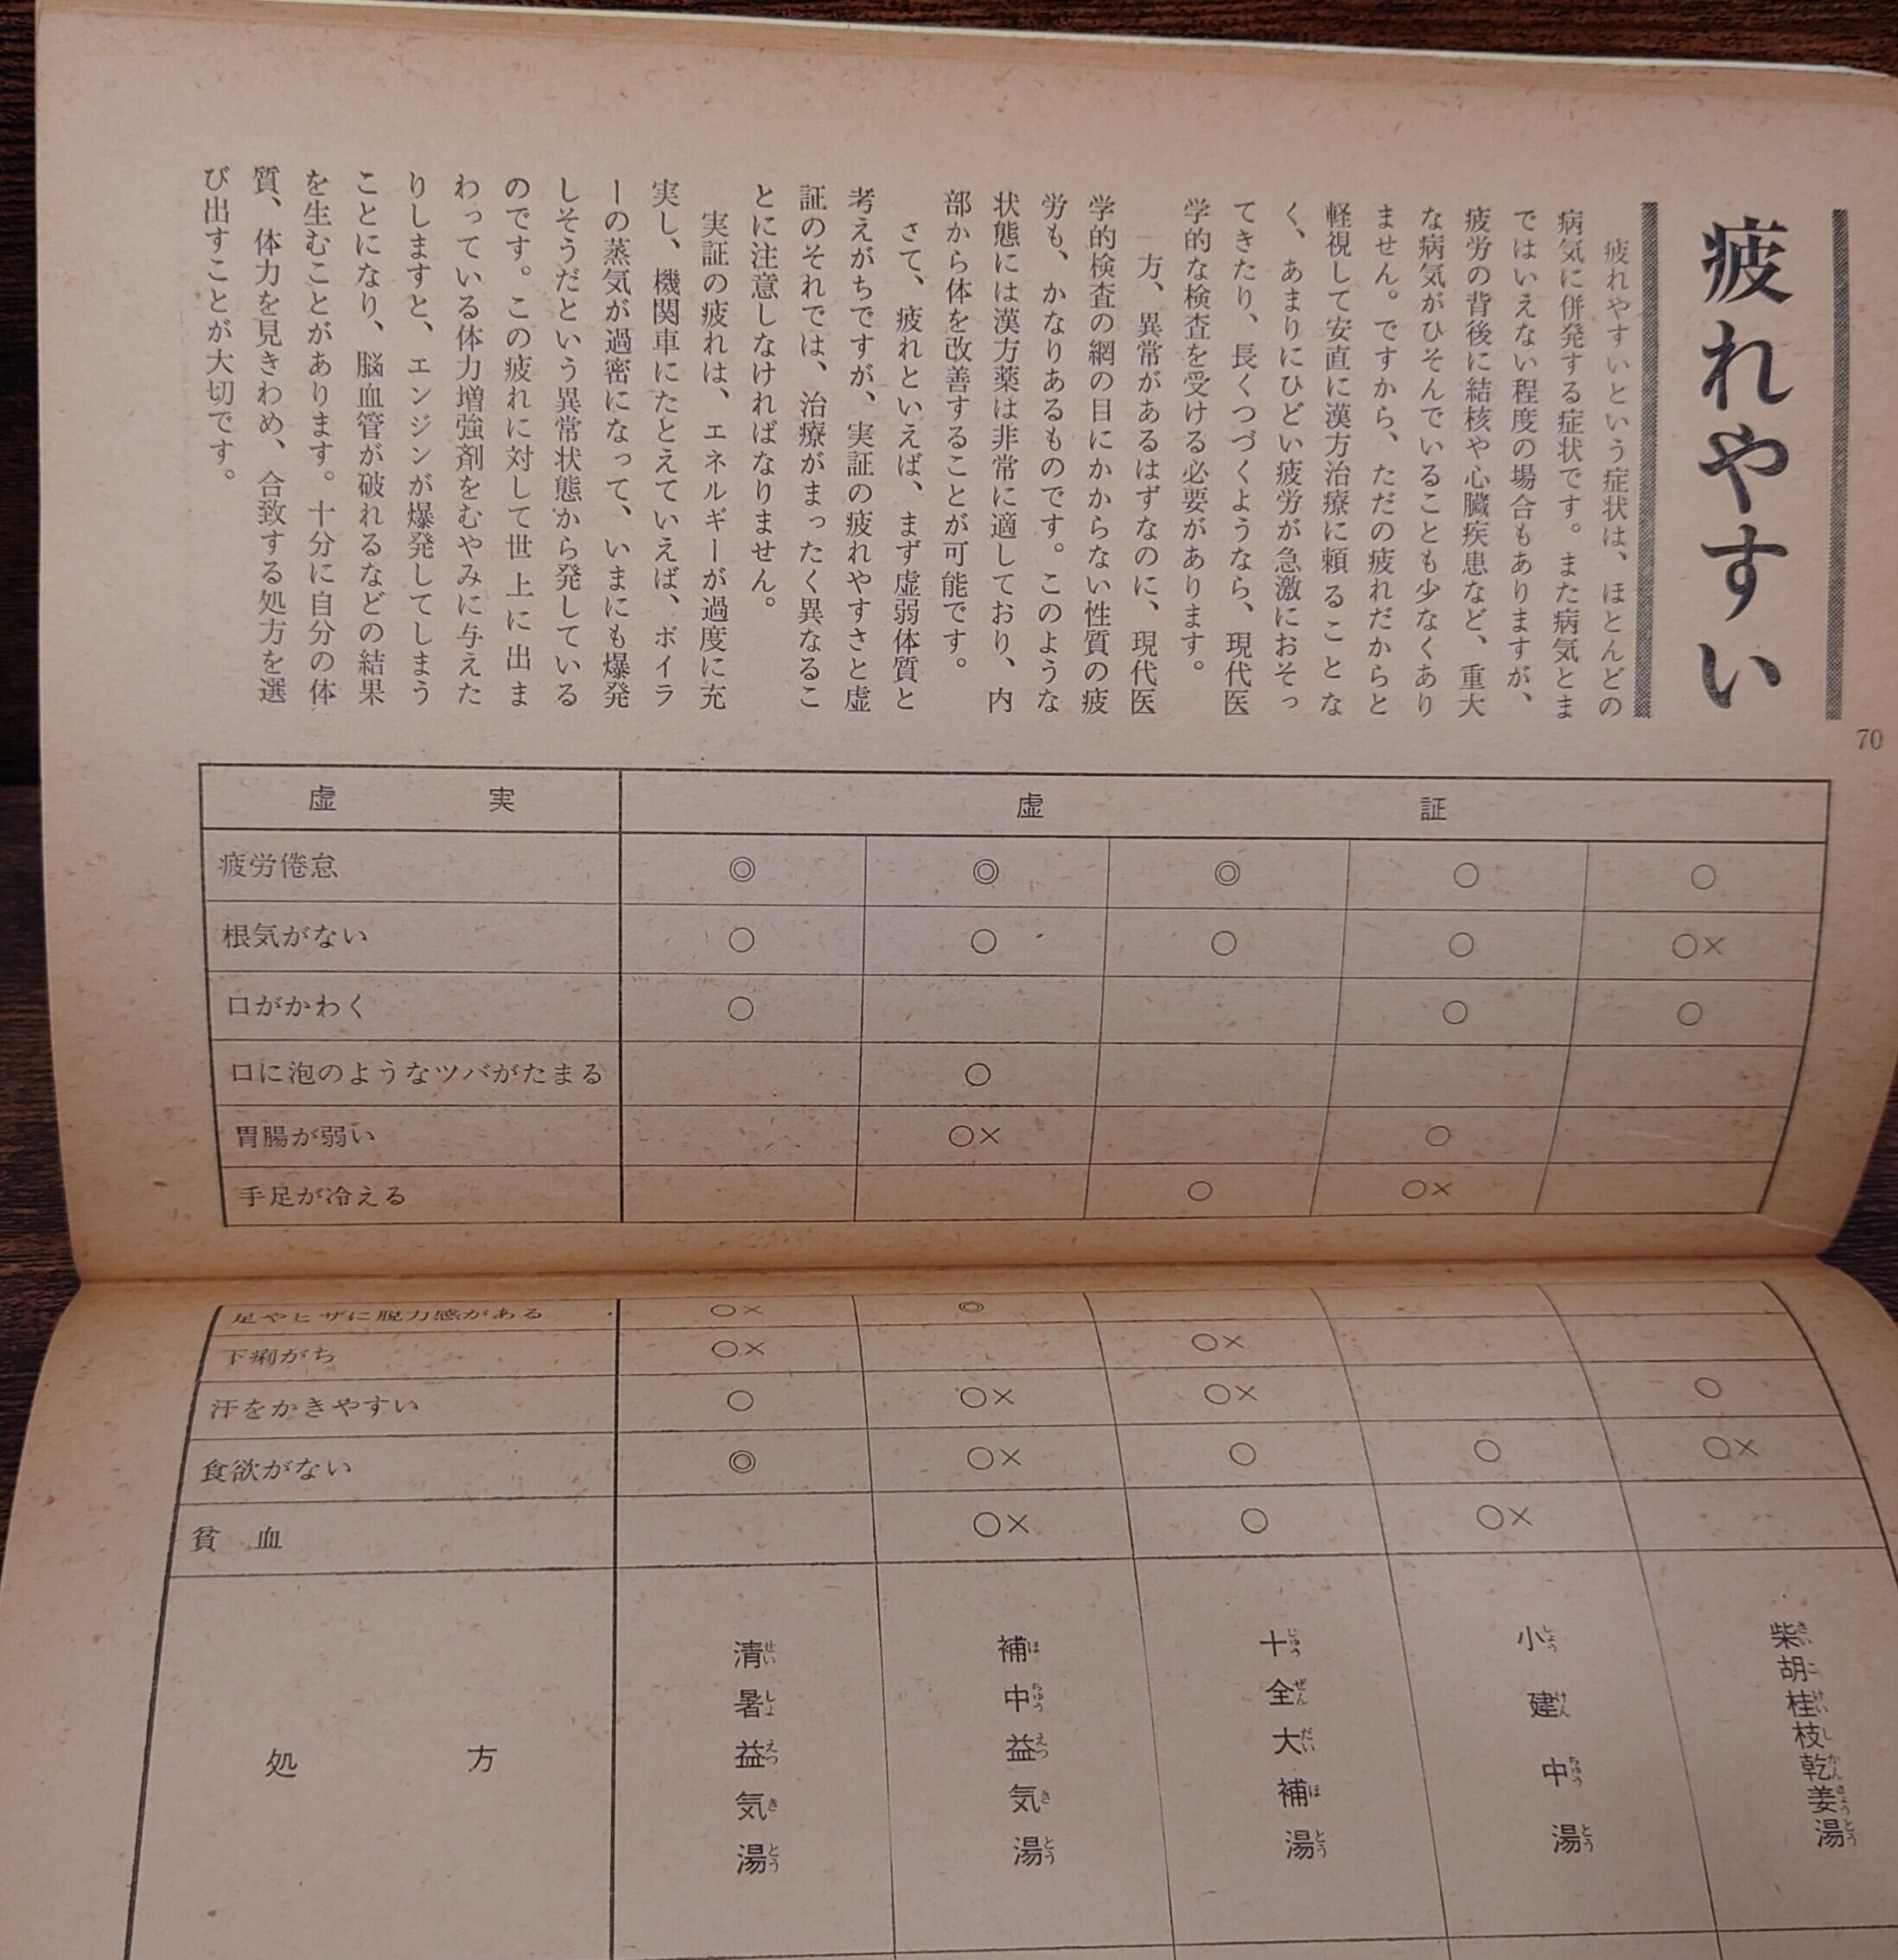 疲れやすい
疲れやすいという症状は、ほとんどの
病気に併発する症状です。また病気とま
ではいえない程度の場合もありますが、
疲労の背後に結核や心臓疾患など、重大
な病気がひそんでいることも少なくあり
ません。ですから、ただの疲れだからと
軽視して安直に漢方治療に頼ることな
く、あまりにひどい疲労が急激におそっ
てきたり、長くつづくようなら、現代医
学的な検査を受ける必要があります。
一方、異常があるはずなのに、現代医
学的検査の網の目にかからない性質の疲
労も、かなりあるものです。このような
状態には漢方薬は非常に適しており、内
部から体を改善することが可能です。
さて、疲れといえば、まず虚弱体質と
考えがちですが、実証の疲れやすさと虚
証のそれでは、治療がまったく異なるこ
とに注意しなければなりません。
実証の疲れは、エネルギーが過度に充
実し、機関車にたとえていえば、ボイラ
ーの蒸気が過密になって、いまにも爆発
しそうだという異常状態から発している
のです。この疲れに対して世上に出ま
わっている体力増強剤をむやみに与えた
りしますと、エンジンが爆発してしまう
ことになり、脳血管が破れるなどの結果
を生むことがあります。十分に自分の体
質、体力を見きわめ、合致する処方を選
び出すことが大切です。
70
虚実 虚証
疲労倦怠 ◎ ◎ ◎ ○ ○
根気がない ○ ○ ○ ○ ○×
口がかわく ○ ○ ○
口に泡のようなツバがたまる ○
胃腸が弱い ○× ○
手足が冷える ○ ○×
足やヒザに脱力感がある ○× ◎
下痢がち ○× ○×
汗をかきやすい ○ ○× ○× ○
食欲がない ◎ ○× ○ ○ ○×
貧血 ○× ○ ○×
処方
清暑益気湯 せいしょえっきとう
補中益気湯 ほちゅうえっきとう
十全大補湯 じゅうぜんだいほとう
小建中湯 しょうけんちゅうとう
柴胡桂枝乾姜湯 さいこけいしかんきょうとう